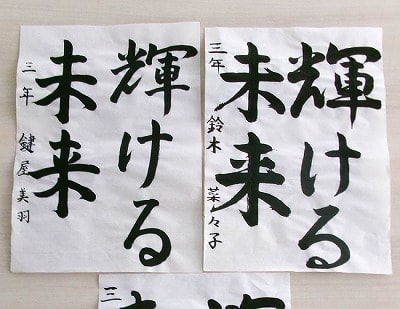 輝ける
未来
三年 鈴木 菜々子
輝ける
未来
三年 鍵屋美羽
輝
未
三